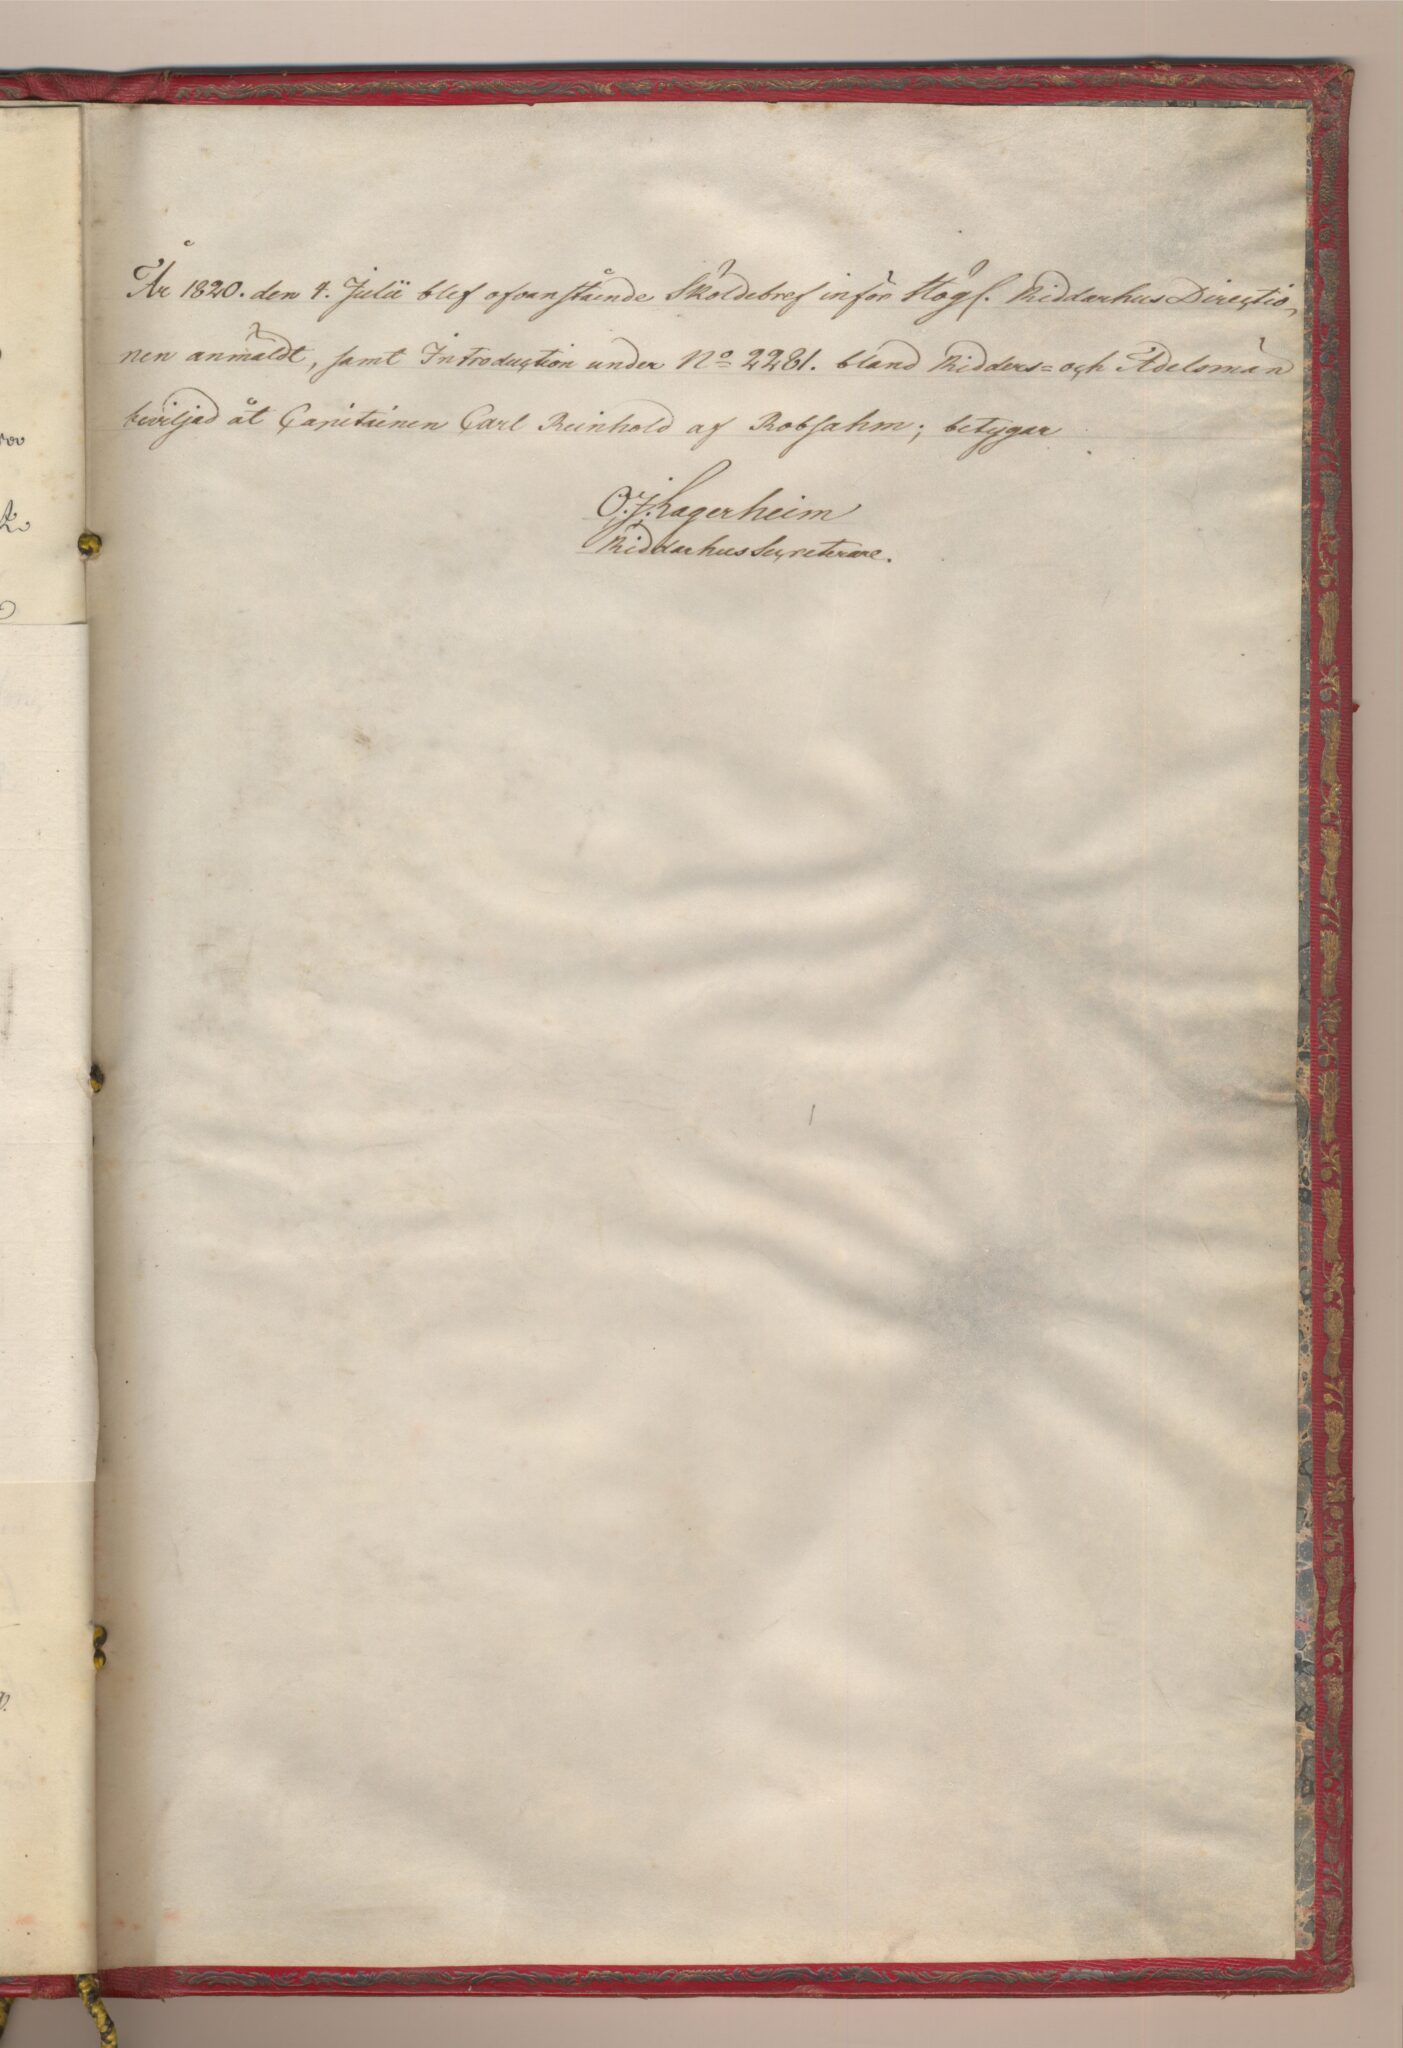 År 1820. den 4. Julii blef ofvanstående Sköldebref inför Högl. Riddarhus Directio,
nen anmäldt, samt Introduction under No 2281. bland Ridders= och Adelsmän
beviljad åt Capitainen Carl Reinhold af Robsahm; betygar
O. J. Lagerheim
Riddarhus Secreterare.